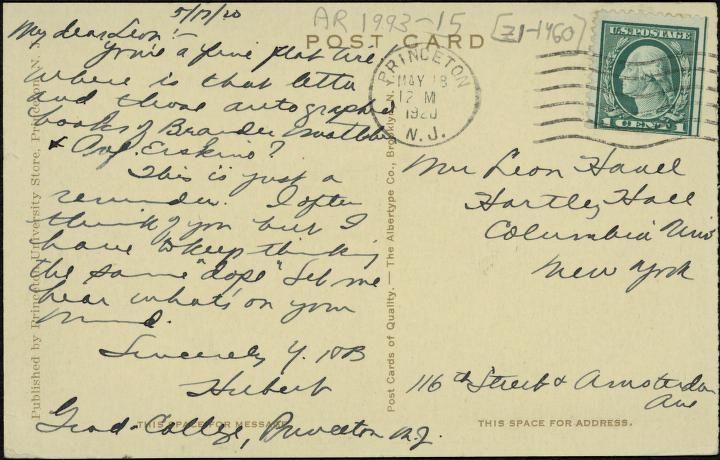 5/17/20
AR 1993-15
[Z1-1460]
POST CARD
U.S. POSTAGE
1 CENT 1
PRINCETON
MAY 18
12 M
1920
N.J.
My dear Leon:-
You're a fine flat tire
Where is that letter
and those autographed
books of Brander Matthews
& Prof. Erskine?
This is just a
reminder. I often
think of you but I
have to keep thinking
the same "dope" Let me
hear what's on your
mind.
Sincerely Y.
Hubert
Grad-College, Princeton N.J.
THIS SPACE FOR MESSAGE
Mr Leon Havel
Hartley Hall
Columbia Univ
New York
116th Street & Amsterdam
Ave
THIS SPACE FOR ADDRESS.
Published by Princeton University Store, Princeton, N. J.
Post Cards of Quality. — The Albertype Co., Brooklyn, N.